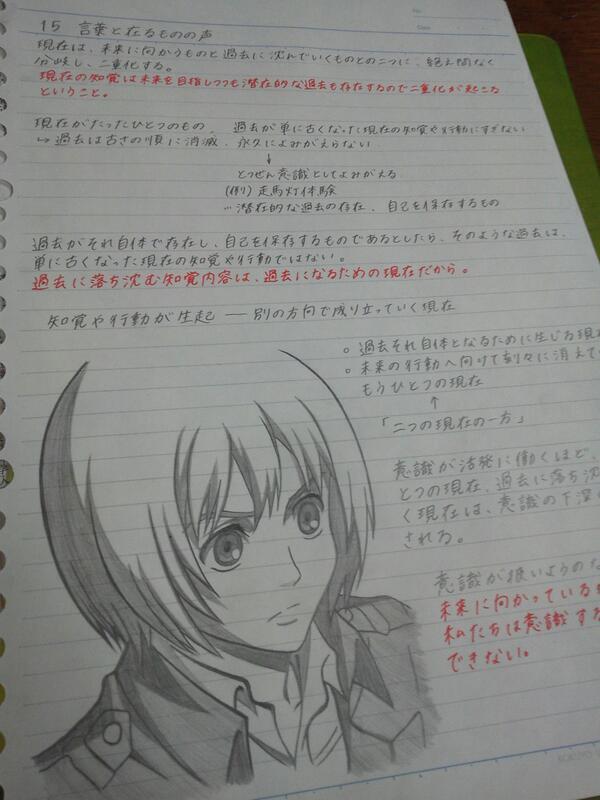 No.
Date
15 言葉と在るものの声
現在は、未来に向かうものと過去に沈んでいくものとの二つに、絶え間なく
分岐し、二重化する。
現在の知覚は未来を目指しつつも潜在的な過去も存在するので二重化が起こる
ということ。
現在がたったひとつのもの、過去が単に古くなった現在の知覚や行動にすぎない
↳ 過去は古さの順に消滅、永久によみがえらない
↓
とつぜん意識としてよみがえる
(例) 走馬灯体験
…潜在的な過去の存在、自己を保存するもの
過去がそれ自体で存在し、自己を保存するものであるとしたら、そのような過去は、
単に古くなった現在の知覚や行動ではない。
過去に落ち沈む知覚内容は、過去になるための現在だから。
知覚や行動が生起 — 別の方向で成り立っていく現在
○ 過去それ自体となるために生じる現
○ 未来の行動へ向けて刻々に消えて
もうひとつの現在
↑
「二つの現在の一方」
意識が活発に働くほど、
とつの現在、過去に落ち沈
く現在は、意識の下深く
される。
意識が強いようのな
未来に向かっている
私たちは意識す
できない。
KOKUYO